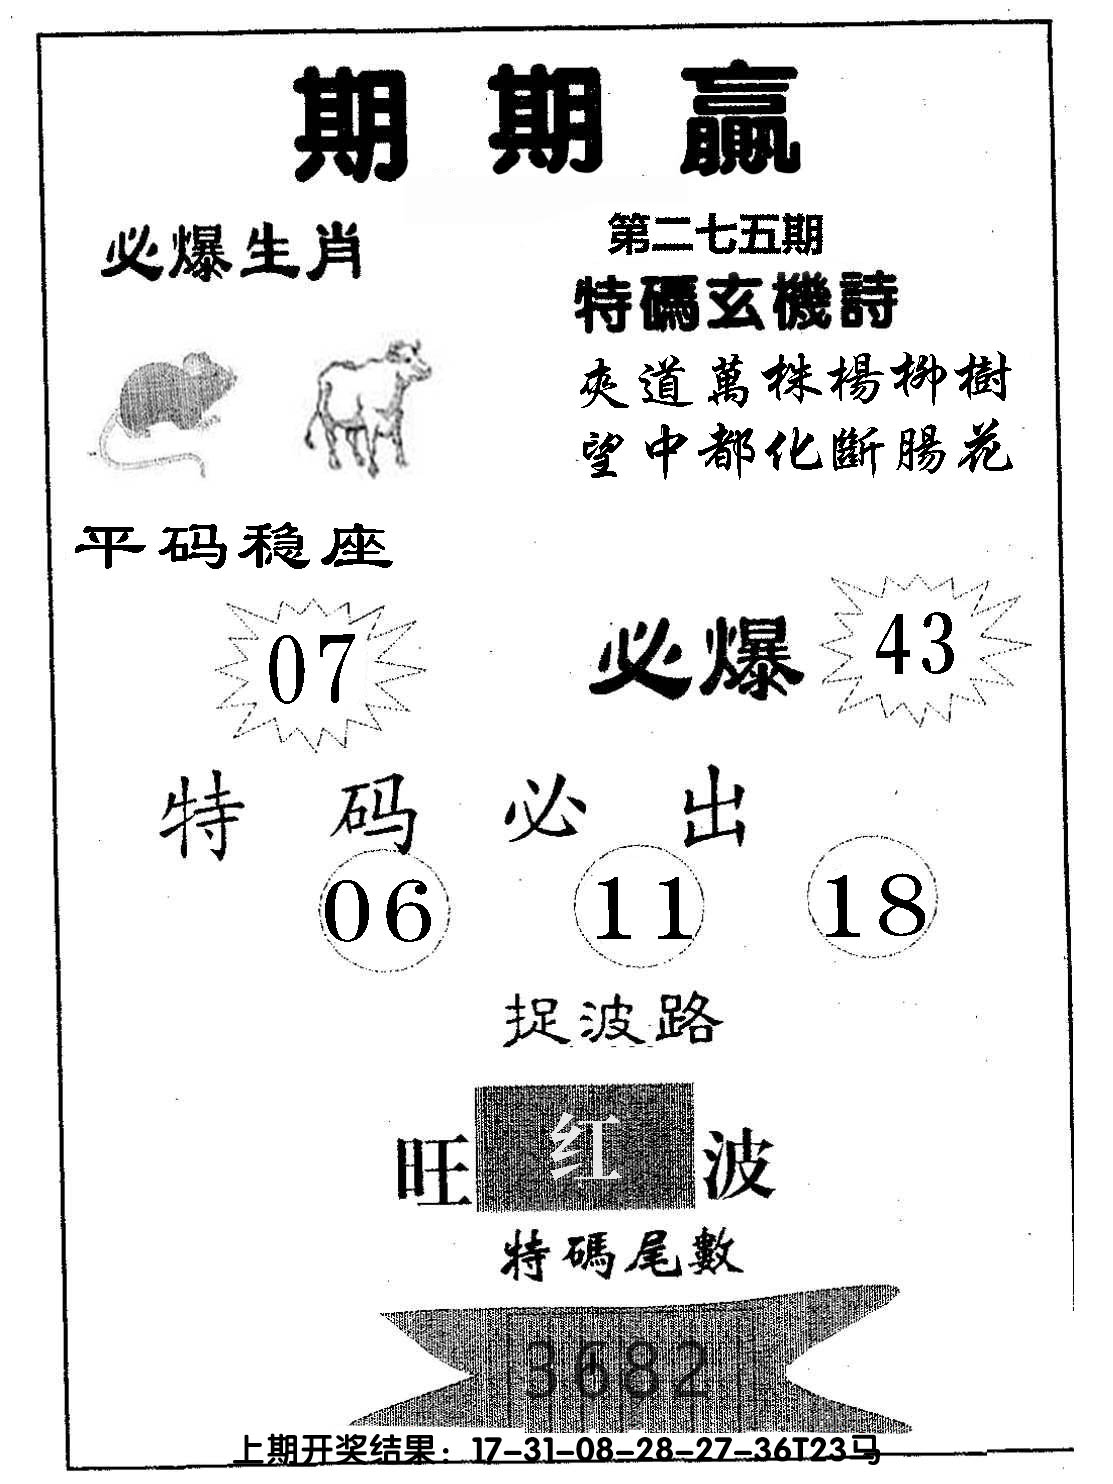 期期贏
必爆生肖
第二七五期
特碼玄機詩
夾道萬株楊柳樹
望中都化斷腸花
平码稳座
07
必爆 43
特码必出
06 11 18
捉波路
旺 红 波
特碼尾數
3682
上期开奖结果：17-31-08-28-27-36T23马